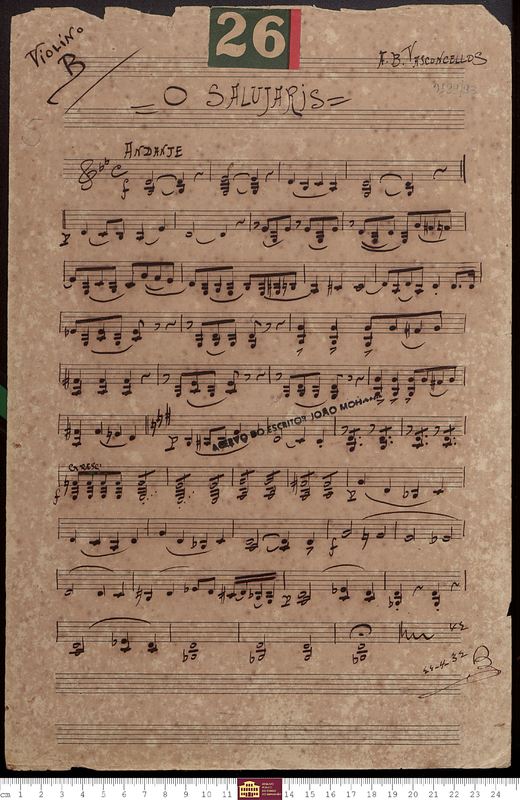 26
VIOLINO
B
A. B. VASCONCELLOS
= O SALUTARIS =
ANDANTE
ACERVO DO ESCRITOR JOÃO MOHANA
CRESC.
B
cm 1 2 3 4 5 6 7 8 9 10 11 12 13 14 15 16 17 18 19 20 21 22 23 24